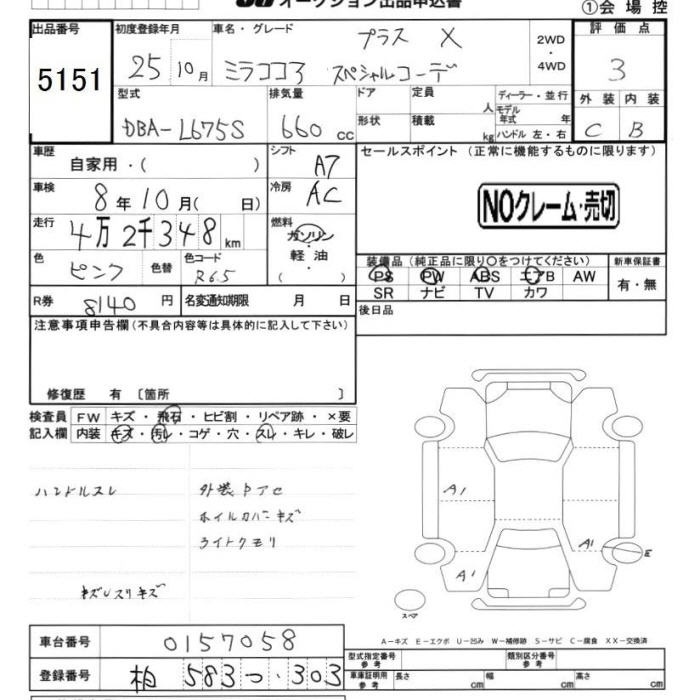 オークション出品申込書
①会場控
出品番号 5151
初度登録年月 25 10月
車名・グレード プラス X
ミラココア スペシャルコーデ
2WD・4WD
評価点 3
外装 内装
C B
型式 DBA-L675S
排気量 660 cc
ドア 形状
定員 人
積載 kg
ディーラー・並行
モデル年式 年
ハンドル 左・右
車歴 自家用・( )
シフト A7
セールスポイント (正常に機能するものに限ります)
車検 8年10月( 日)
冷房 AC
NOクレーム・売切
走行 4万2千348km
燃料 ガソリン・軽油・( )
色 ピンク 色替
色コード R65
装備品 (純正品に限り○をつけてください)
PS PW ABS エアB AW
SR ナビ TV カワ
新車保証書 有・無
R券 8140円
名変通知期限 月 日
後日品
注意事項申告欄(不具合内容等は具体的に記入して下さい)
修復歴 有 〔箇所 〕
検査員 FW キズ・飛石・ヒビ割・リペア跡・×要
記入欄 内装 キズ・汚レ・コゲ・穴・スレ・キレ・破レ
ハンドルスレ
外装PTC
ホイルカバーキズ
ライトクモリ
A1
A1
E
A1
スペア
A-キズ E-エクボ U-凹み W-補修跡 S-サビ C-腐食 XX-交換済
車台番号 0157058
型式指定番号 参考
類別区分番号 参考
登録番号 柏 583 つ 303
車庫証明用 参考 長さ cm 幅 cm 高さ cm